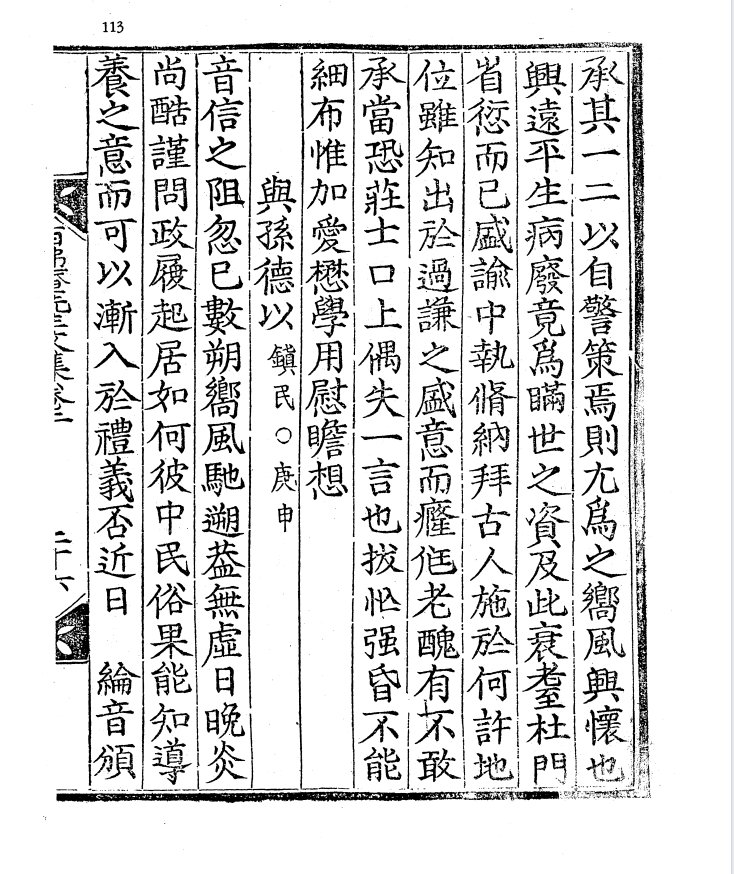 113
承其一二以自警策焉則尤爲之嚮風興懷也
興遠平生病廢竟爲瞞世之資及此衰耋杜門
省愆而已盛諭中執脩納拜古人施於何許地
位雖知出於過謙之盛意而癃尫老醜有不敢
承當恐莊士口上偶失一言也拔忙强昏不能
細布惟加愛懋學用慰瞻想
與孫德以 鎭民○庚申
音信之阻忽已數朔嚮風馳遡葢無虛日晚炎
尙酷謹問政履起居如何彼中民俗果能知導
養之意而可以漸入於禮義否近日 綸音頒
先生文集卷二
二十六